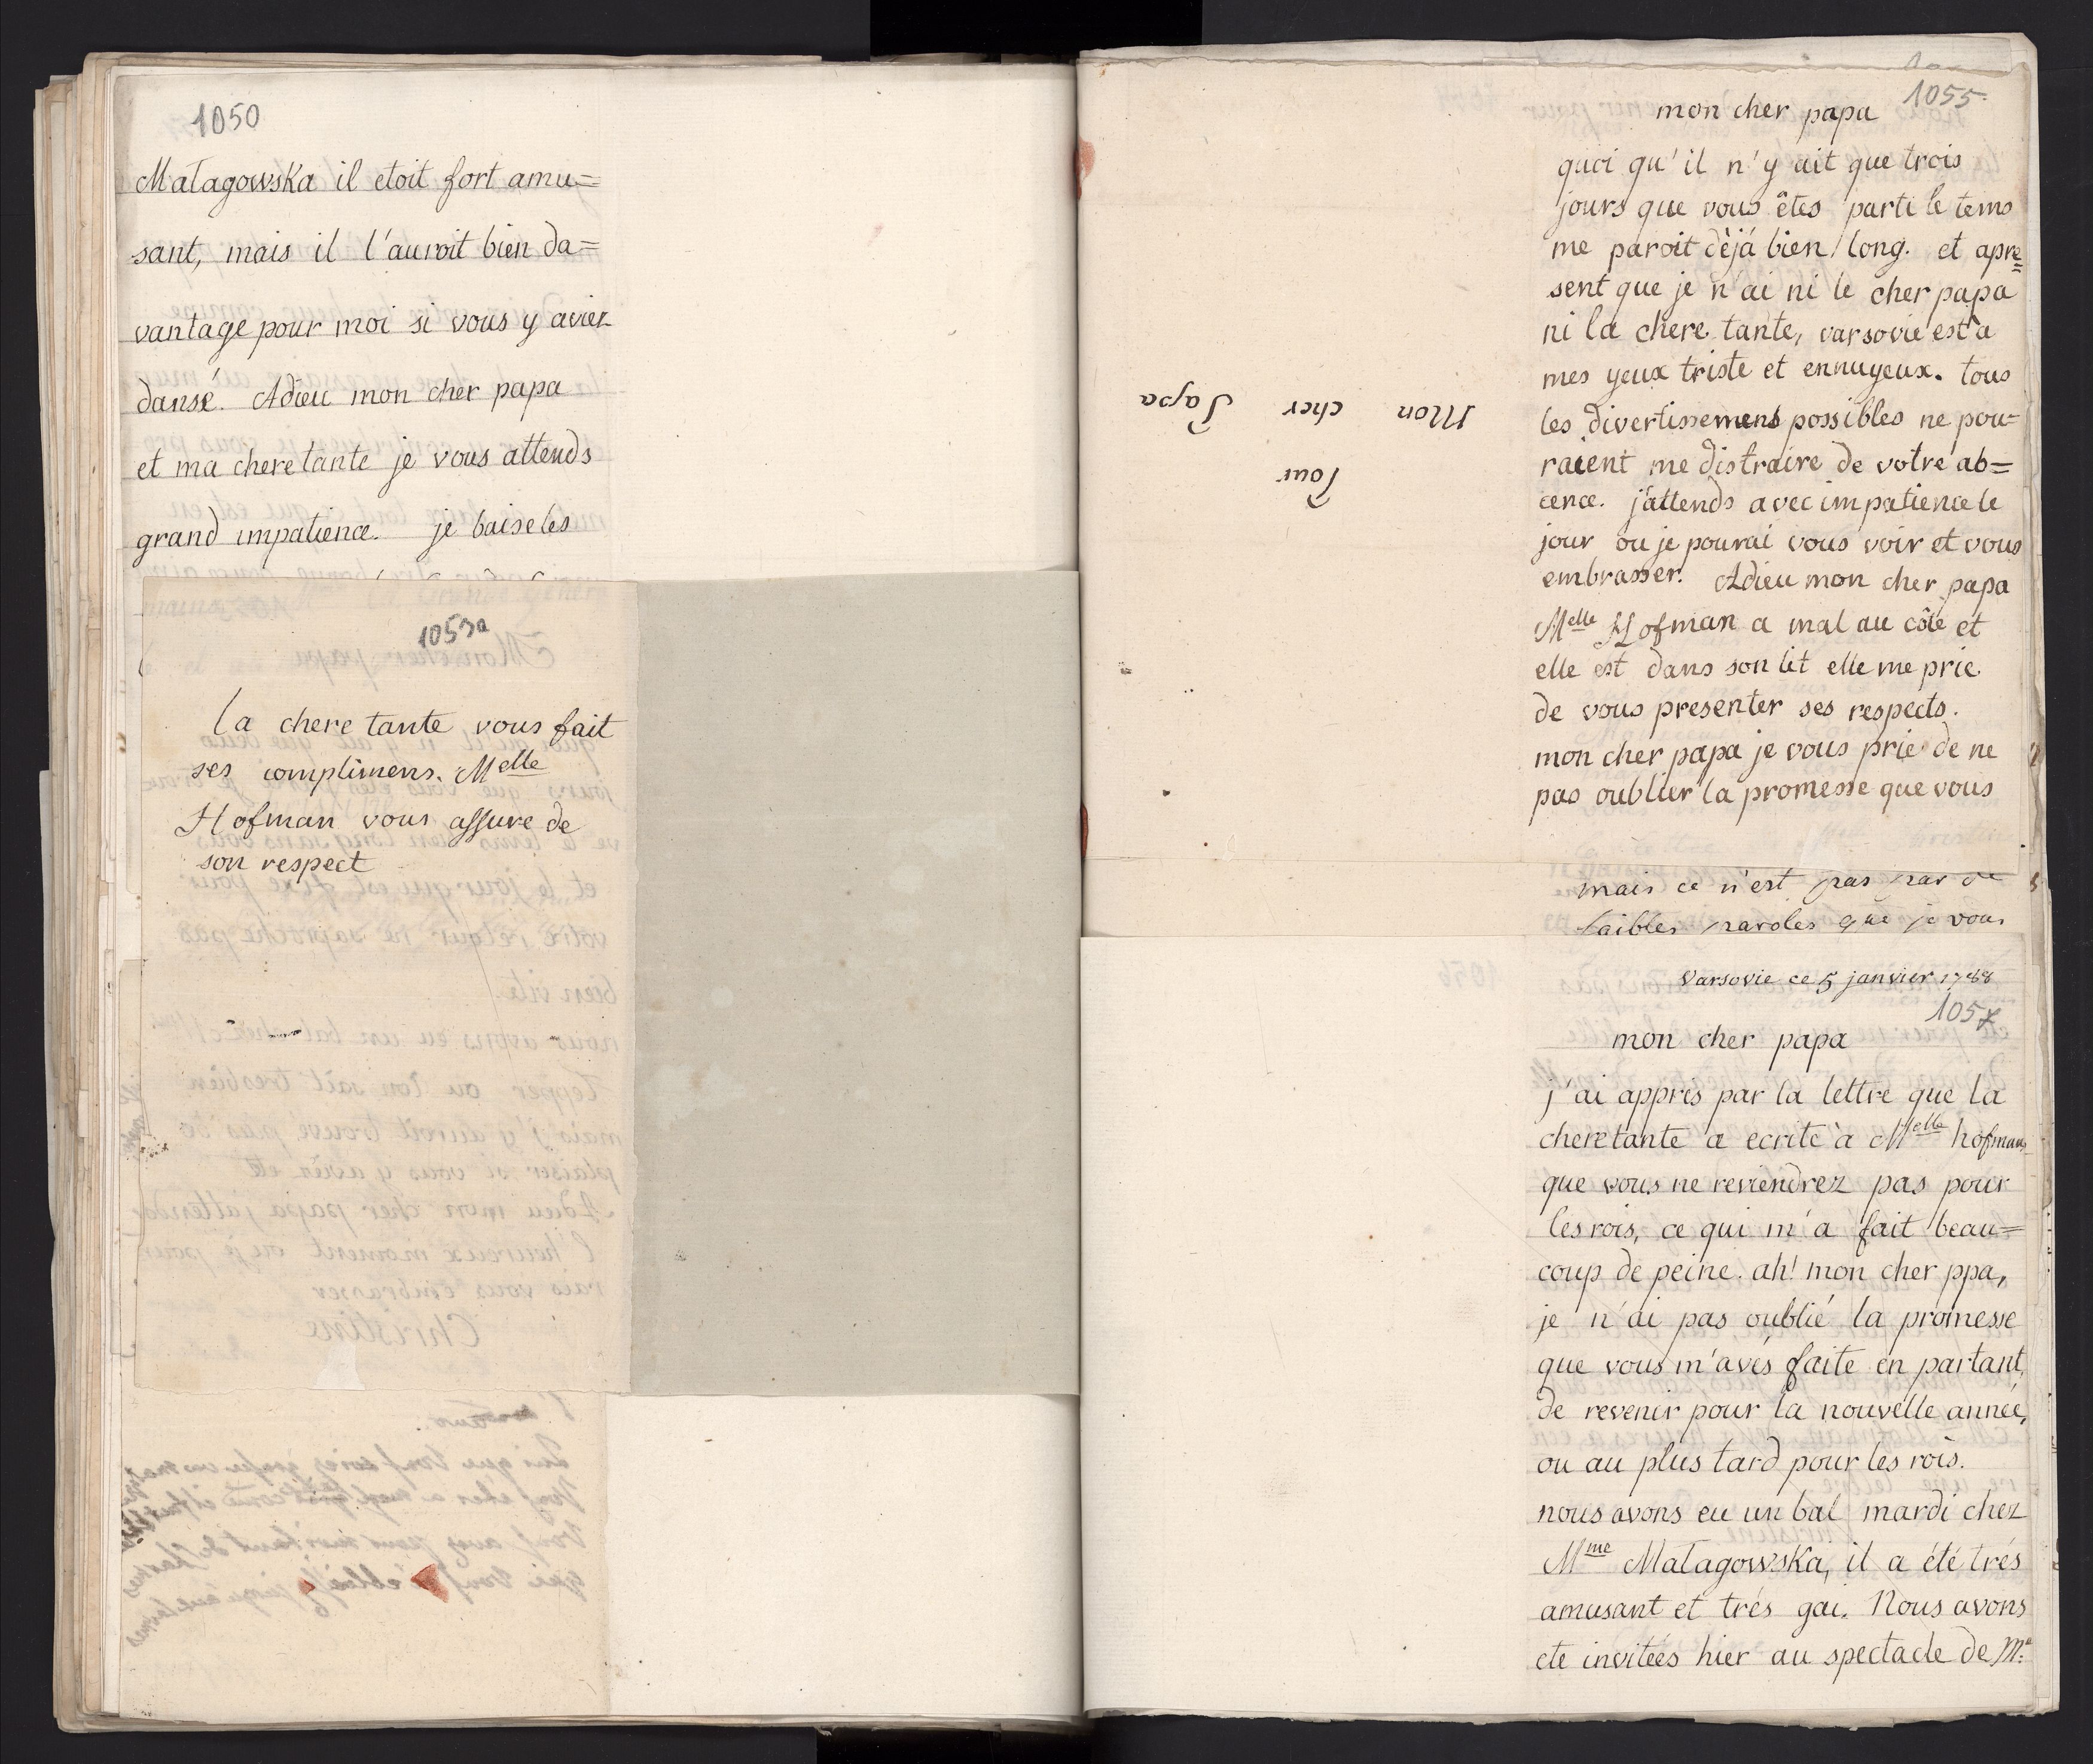 1050
Małagowska il etoit fort amu=
sant, mais il l'auroit bien da=
vantage pour moi si vous y aviez
dansé. Adieu mon cher papa
et ma chere tante je vous attends
grand impatience. je baise les
1053a
la chere tante vous fait
ses complimens. Melle
Hofman vous assure de
son respect
Pour
Mon cher Papa
1055
mon cher papa
quoi qu'il n'y ait que trois
jours que vous êtes parti le tems
me paroit dèjà bien long. et apre=
sent que je n'ai ni le cher papa
ni la chere tante, varsovie est a
mes yeux triste et ennuyeux. tous
les divertissemens possibles ne pou=
raient me distraire de votre ab=
cence. j'attends avec impatience le
jour ou je pourai vous voir et vous
embrasser. Adieu mon cher papa
Melle Hofman a mal au côté et
elle est dans son lit elle me prie
de vous presenter ses respects.
mon cher papa je vous prie de ne
pas oublier la promesse que vous
mais ce n'est pas par de
faibles paroles que je vous
Varsovie ce 5 janvier 1788
1057
mon cher papa
j'ai appris par la lettre que la
chere tante a ecrite à Melle hofman
que vous ne reviendrez pas pour
les rois, ce qui m'a fait beau=
coup de peine. ah! mon cher ppa,
je n'ai pas oublié la promesse
que vous m'avés faite en partant,
de revenir pour la nouvelle année,
ou au plus tard pour les rois.
nous avons eu un bal mardi chez
Mme Małagowska, il a été trés
amusant et trés gai. Nous avons
ete invitées hier au spectacle de Me.